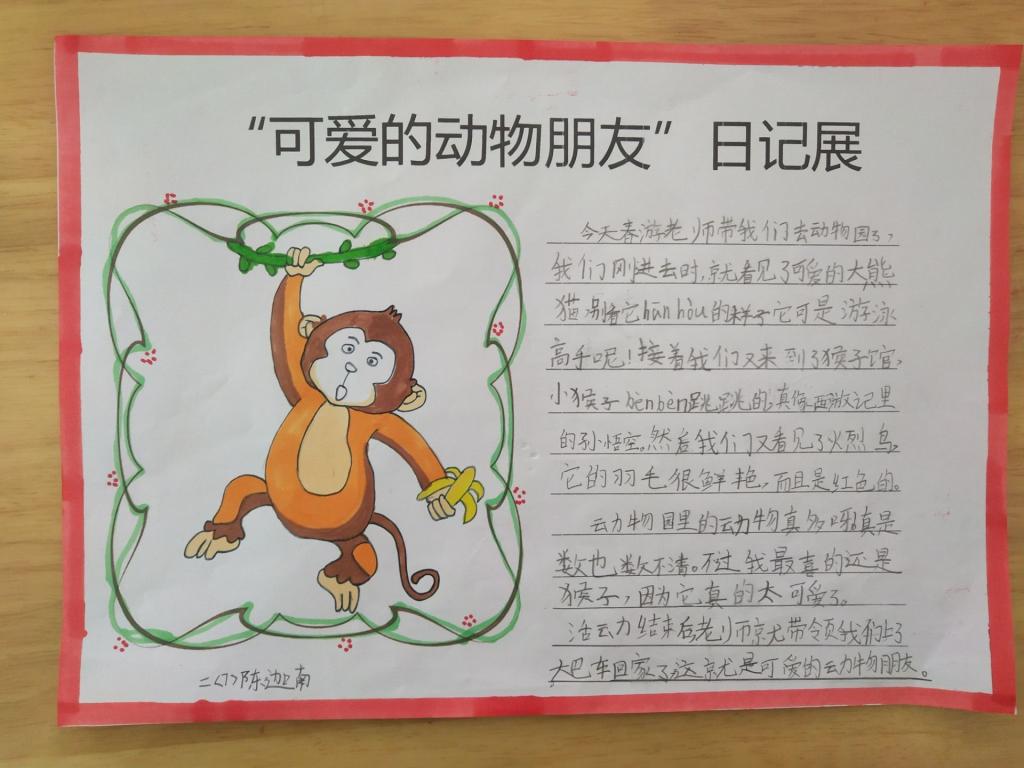 “可爱的动物朋友” 日记展
今天春游老师带我们去动物园了，
我们刚进去时，就看见了可爱的大熊
猫，别看它hān hòu的样子它可是游泳
高手呢！接着我们又来到了猴子馆，
小猴子bèn bèn跳跳的，真像西游记里
的孙悟空。然后我们又看见了火烈鸟，
它的羽毛很鲜艳，而且是红色的。
动物园里的动物真多呀！真是
数也数不清。不过我最喜的还是
猴子，因为它真的太可爱了。
活动结束后老师就带领我们上了
大巴车回家了，这就是可爱的动物朋友。
二〈7〉陈边南